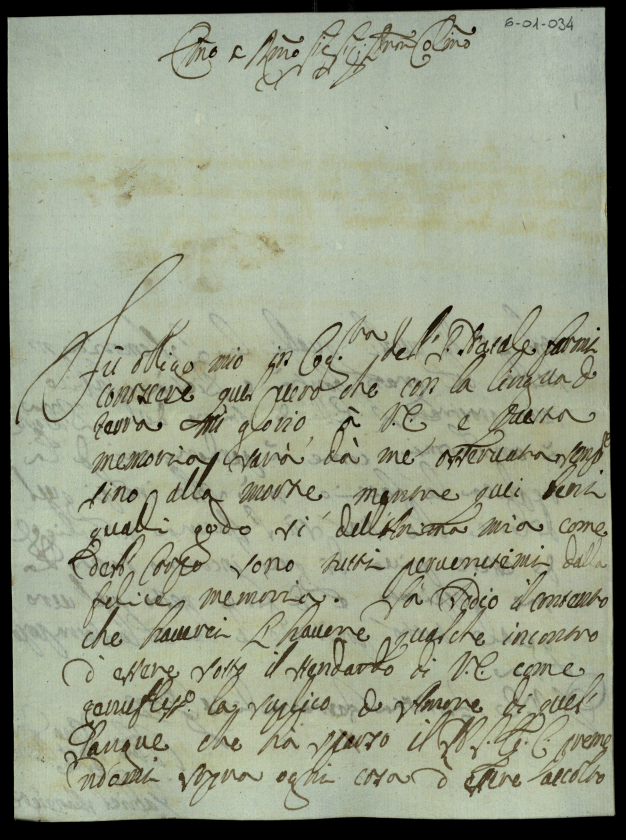 6-01-034
Emo e Rmo Sig. Sig. Pron Colmo
Fù obligo mio in Cog.ra dell' S. Natale farmi
conoscere quel vero che con la lingua è
terra mi glorio à V.E. e questa
memoria sarà dà me osservata sempe
fino alla morte mentre quei beni
quali godo si dell'Anima mia come
del Corpo sono tutti
dalla
felice memoria. Sa Iddio il contento
che haverei p havere qualche incontro
d'essere sotto il stendardo di V.E. come
genuflesso la suplico
di quel
Sangue che hà sparso il N.S.G.C. preme
ndomi sopra ogni cosa d'essere